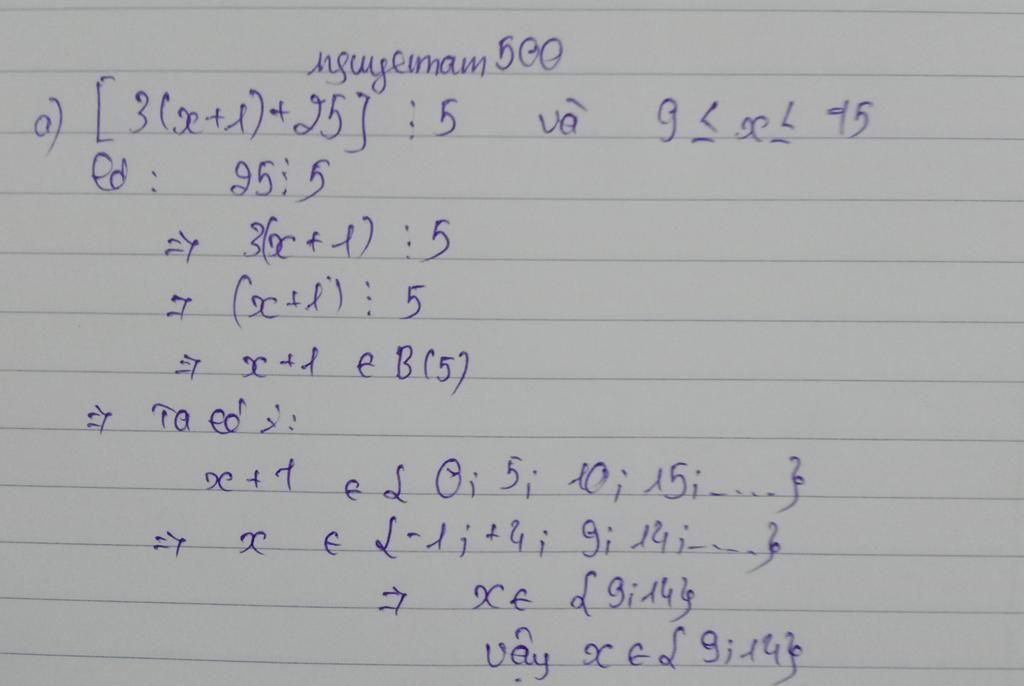 nguyetnam500
a) [3(x+1)+25] ⋮ 5 và 9 ≤ x ≤ 15
Có : 25 ⋮ 5
⇒ 3(x+1) ⋮ 5
⇒ (x+1) ⋮ 5
⇒ x+1 ∈ B(5)
⇒ Ta có :
x+1 ∈ { 0; 5; 10; 15; ..... }
⇒ x ∈ {-1; +4; 9; 14; ..... }
⇒ x ∈ {9;14}
Vậy x ∈ { 9;14}